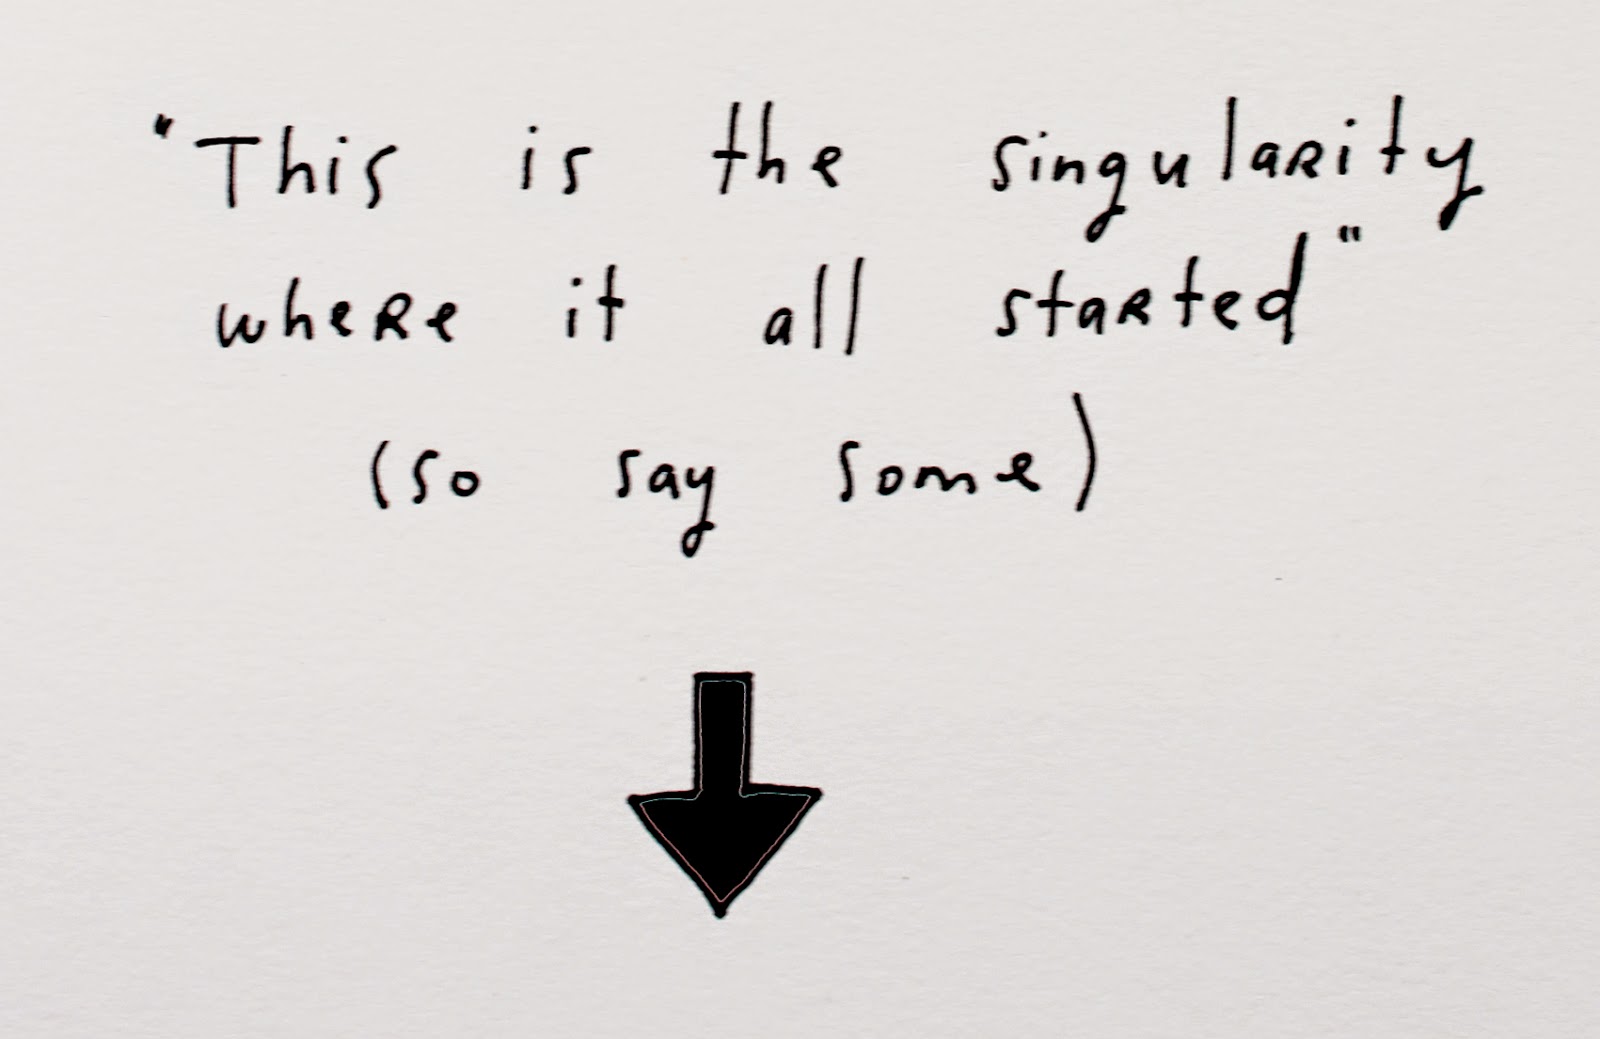 "This is the singularity
where it all started"
(so say some)